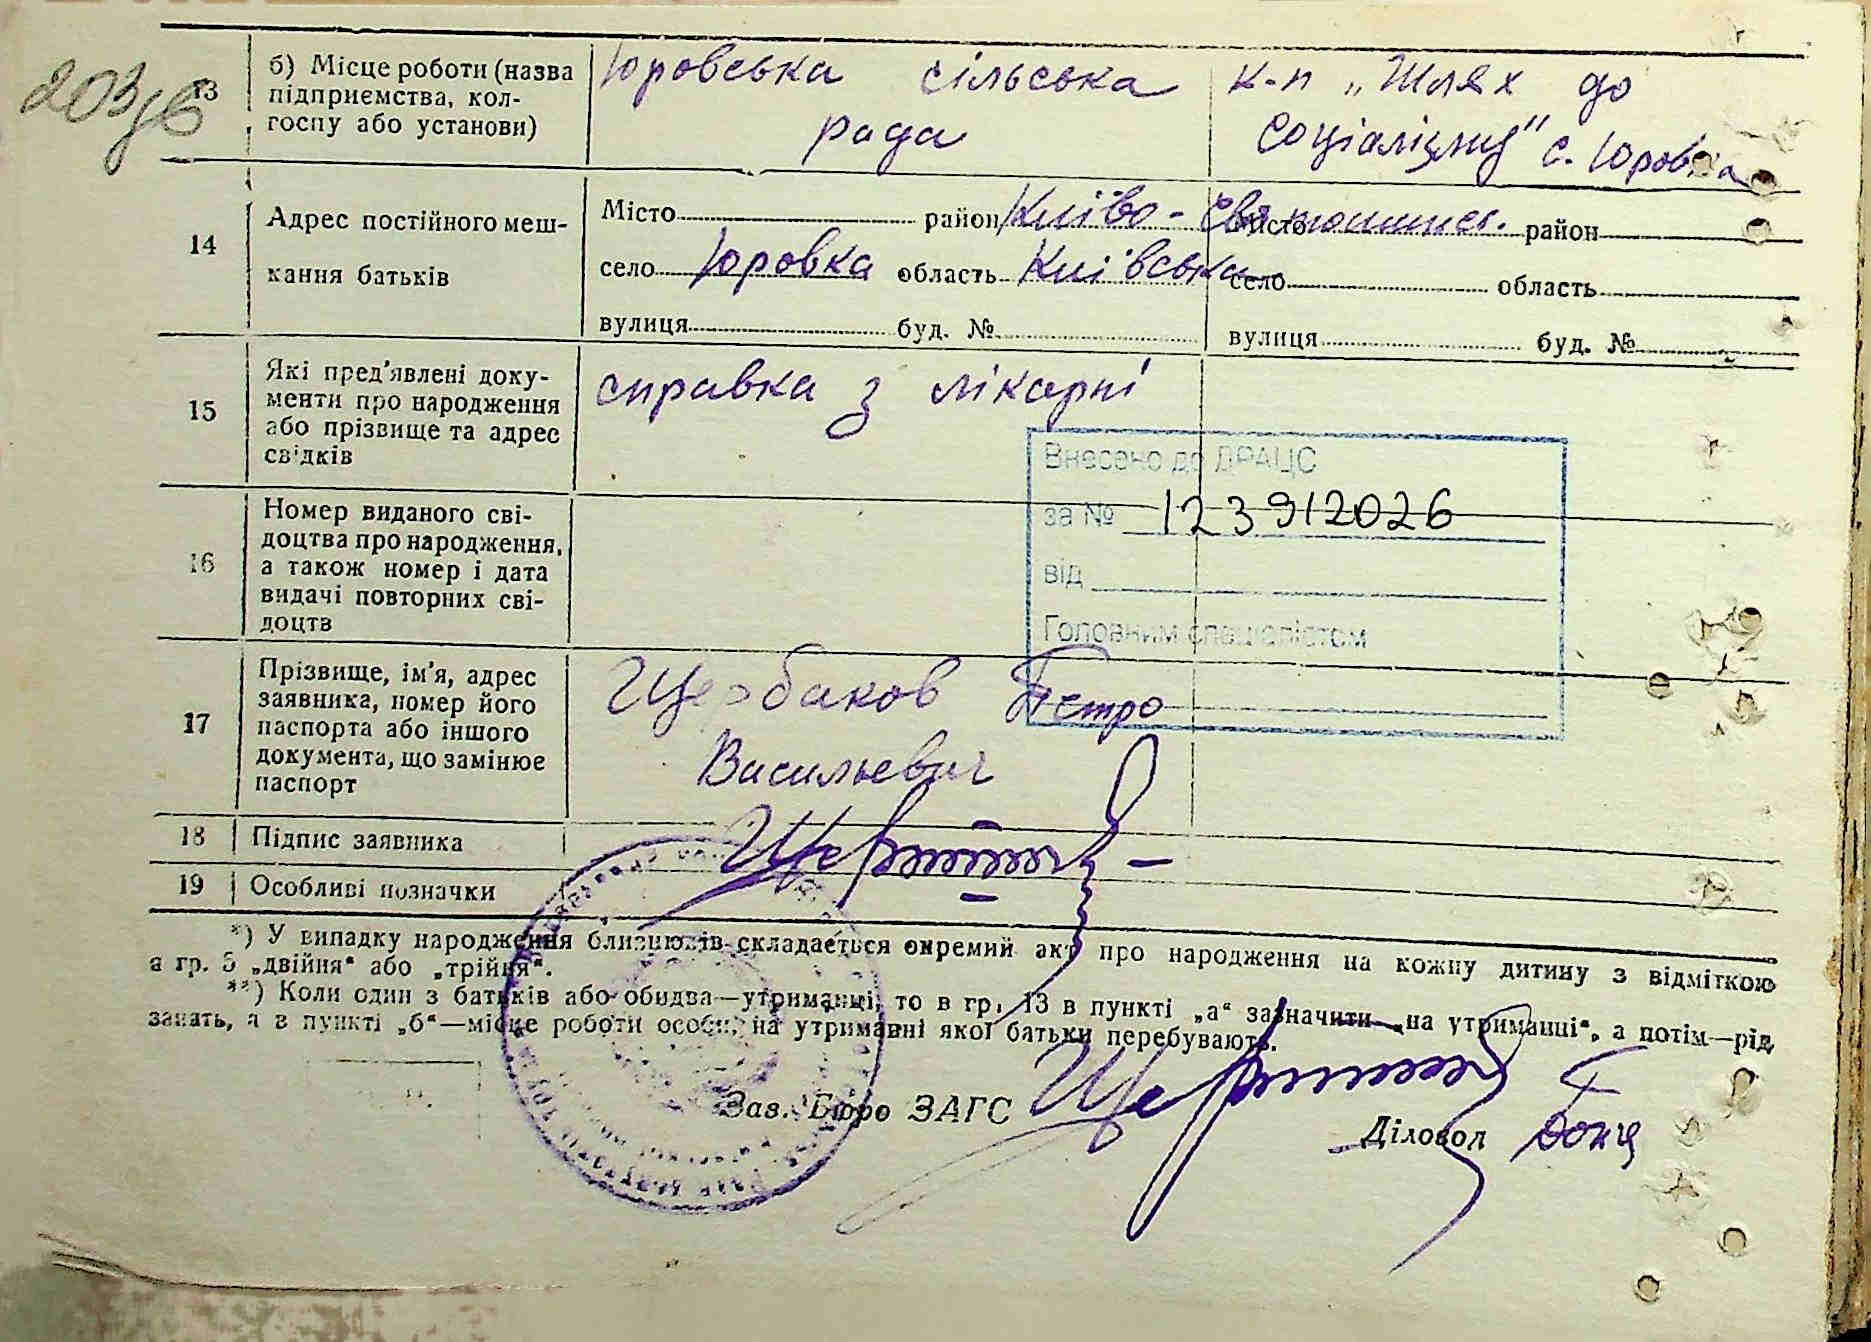 203зв
13 б) Місце роботи (назва підприємства, кол-
госпу або установи)
Юровська сільська
рада
к-п „Шлях до
соціалізму" с. Юровка
14 Адрес постійного меш-
кання батьків
Місто район Києво-Святошинс.
село Юровка область Київська
вулиця буд. №
Місто район
село область
вулиця буд. №
15 Які пред'явлені доку-
менти про народження
або прізвище та адрес
свідків
справка з лікарні
Внесено до ДРАЦС
за № 123912026
від
Головним спеціалістом
16 Номер виданого сві-
доцтва про народження,
а також номер і дата
видачі повторних сві-
доцтв
17 Прізвище, ім'я, адрес
заявника, номер його
паспорта або іншого
документа, що замінює
паспорт
Щербаков Петро
Васильевич
18 Підпис заявника
19 Особливі позначки
*) У випадку народження близнюків складається окремий акт про народження на кожну дитину з відміткою
в гр. 5 „двійня" або „трійня".
**) Коли один з батьків або обидва—утриманці, то в гр. 13 в пункті „а" зазначити—„на утриманні", а потім—рід
занять, а в пункті „б"—місце роботи особи, на утриманні якої батьки перебувають.
Зав. Бюро ЗАГС
Діловод